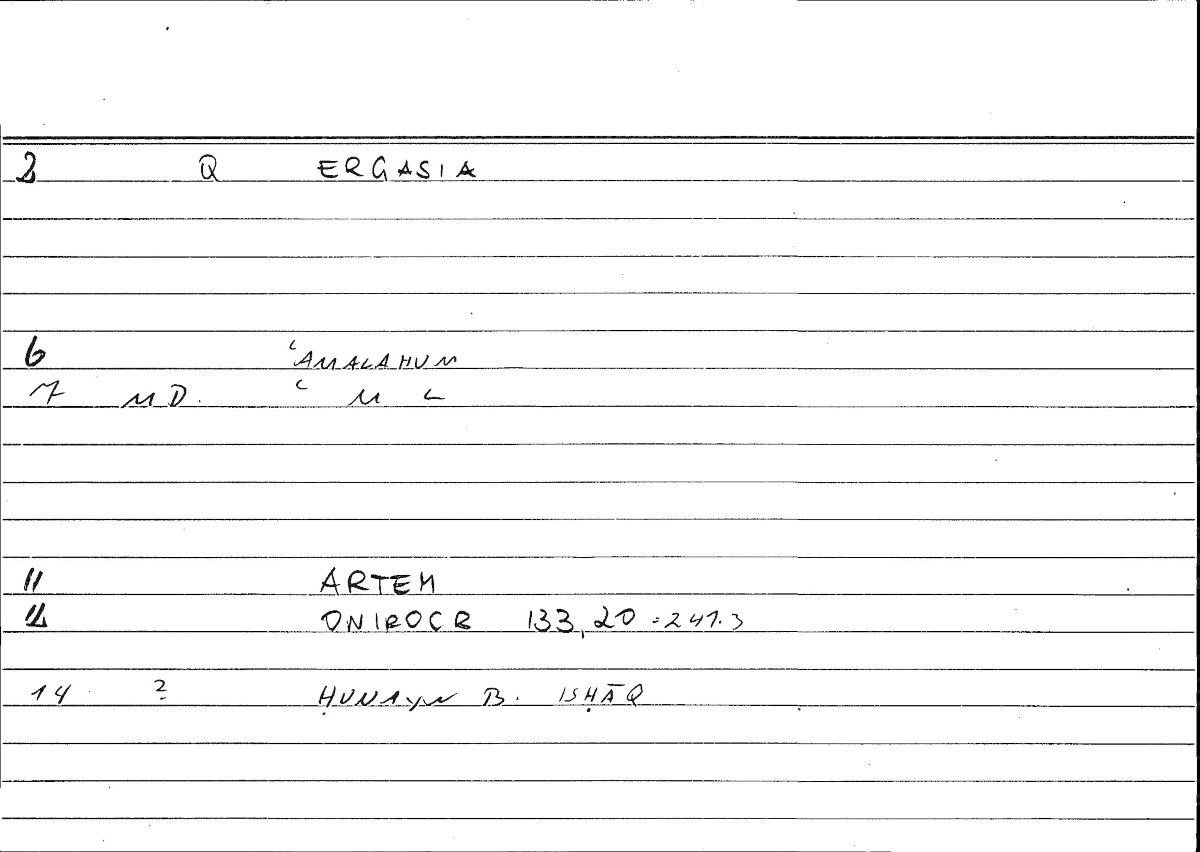 2 Q ERGASIA
6 ʿAMALAHUM
7 MD. ʿ M L
11 ARTEM
12 ONIROCR 133,20 = 241.3
14 ? ḤUNAYN B. ISḤĀQ